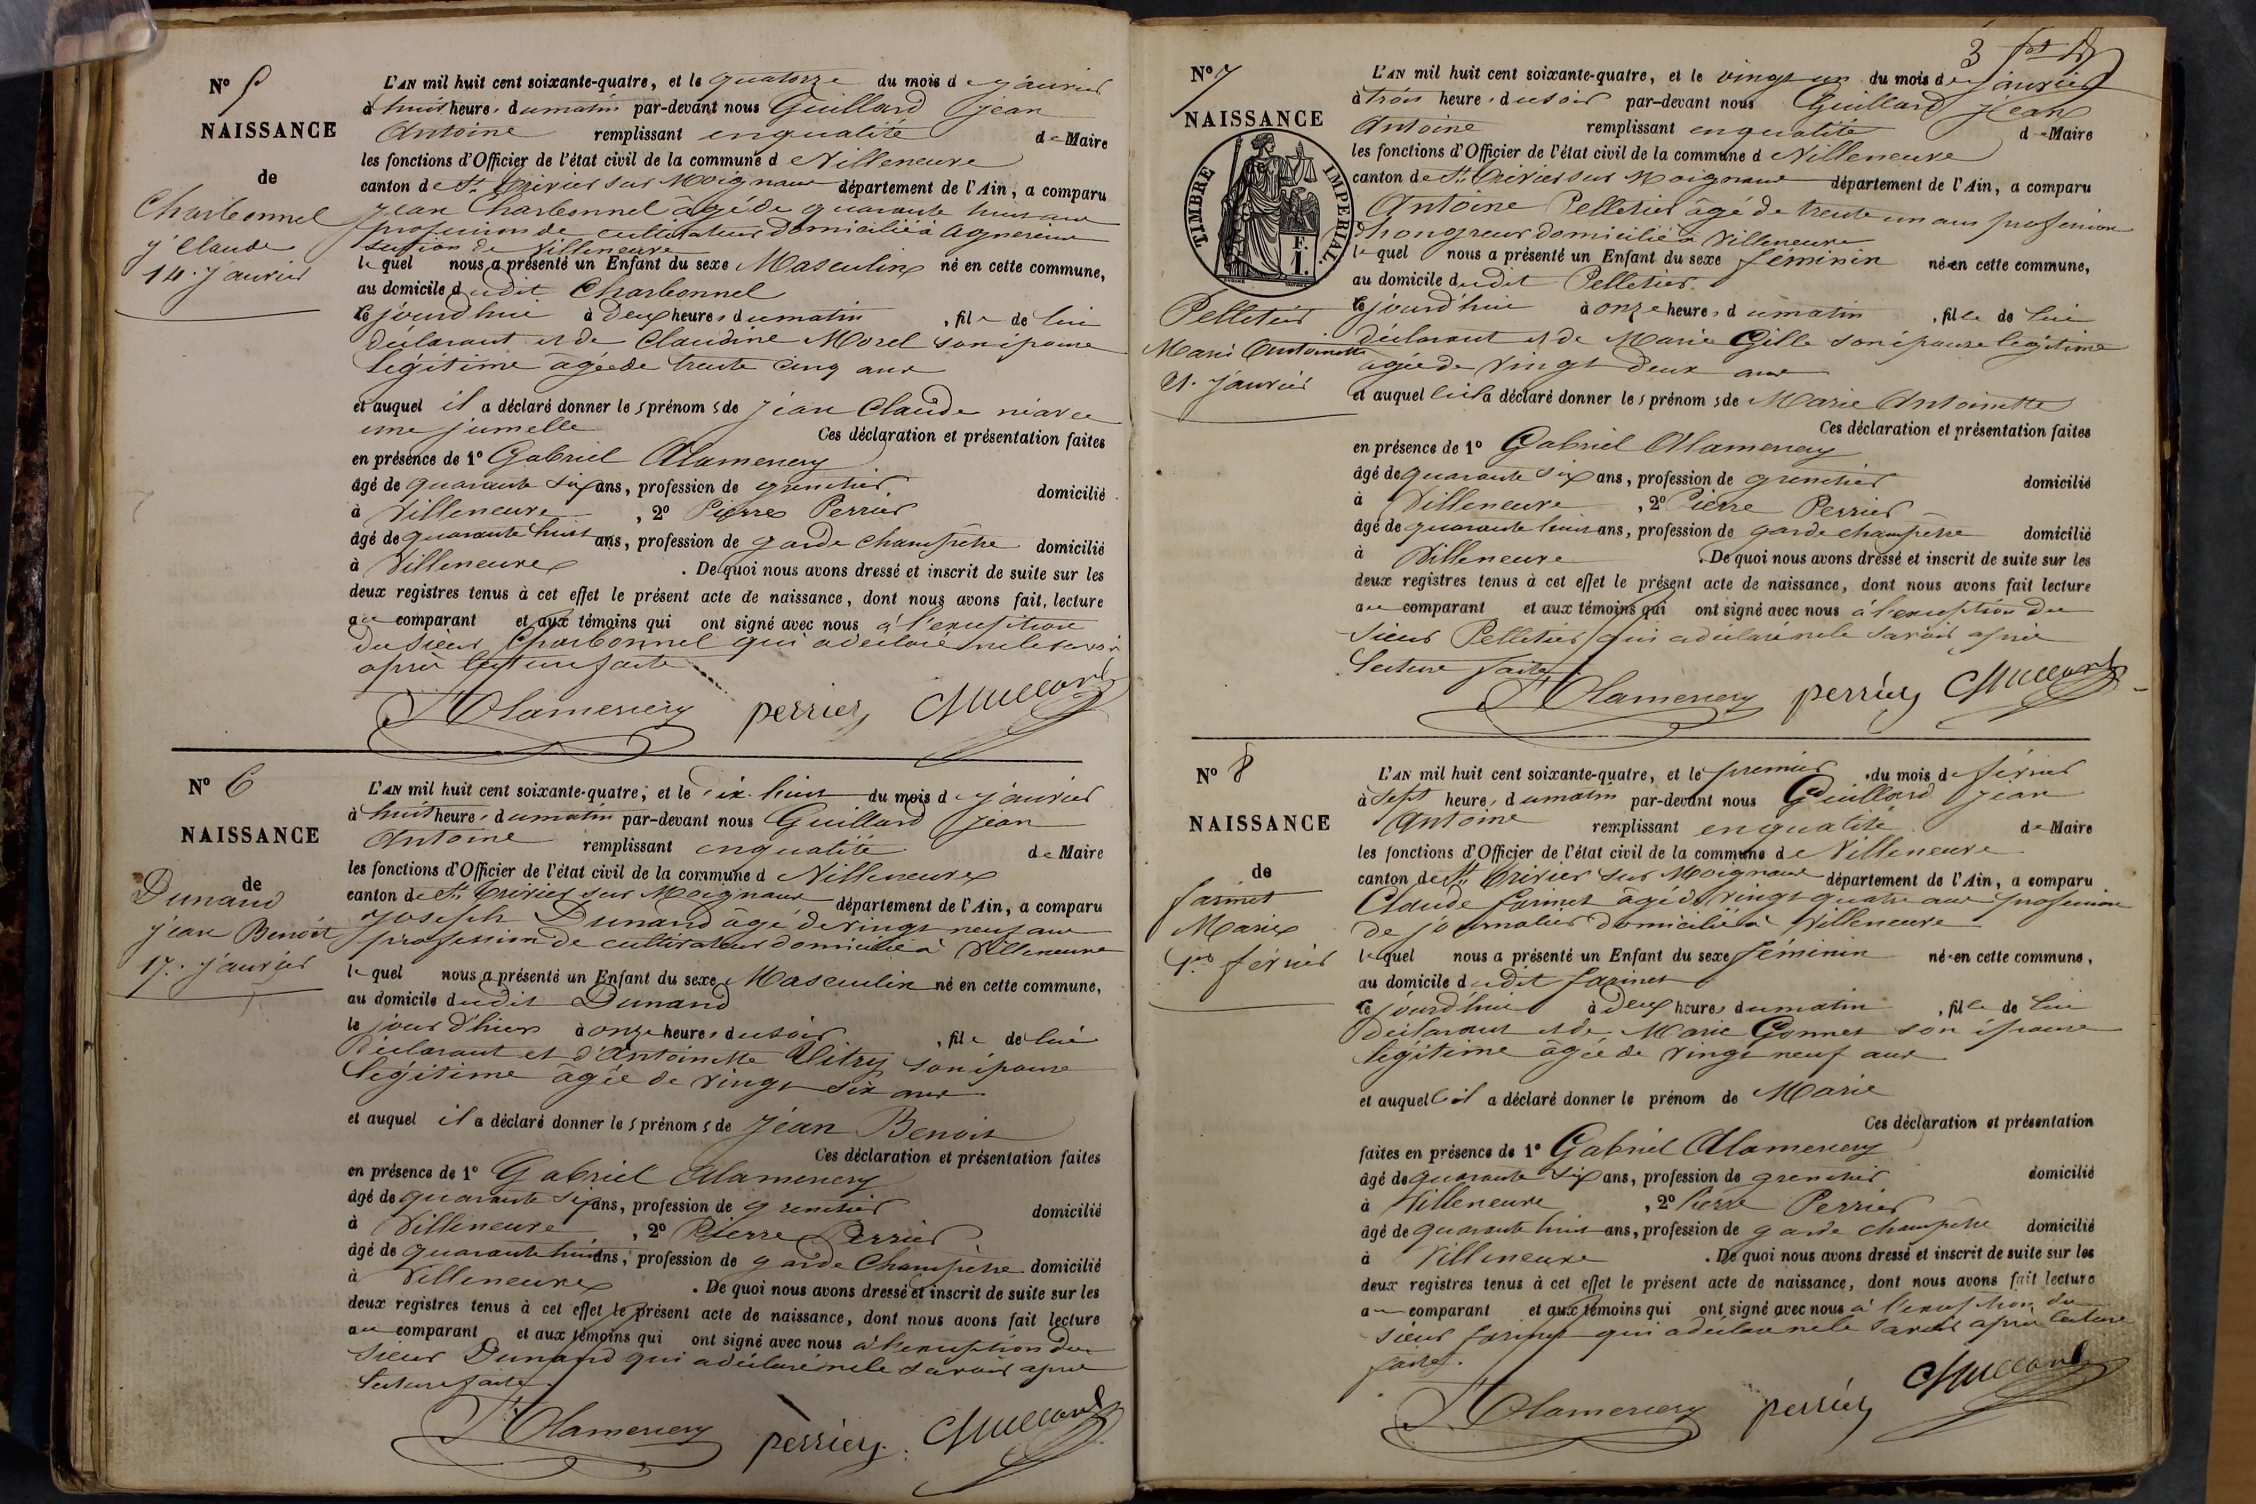 Nº 5
NAISSANCE
de
Charbonnel
J Claude
14. Janvier
L'AN mil huit cent soixante-quatre, et le quatorze du mois de Janvier
à huit heures du matin par-devant nous Guillard Jean
Antoine remplissant en qualité de Maire
les fonctions d'Officier de l'état civil de la commune de Villeneuve
canton de St Trivier sur Moignans département de l'Ain, a comparu
Jean Charbonnel âgé de quarante huit ans
profession de cultivateur domicilié à Agnereins
section de Villeneuve
lequel nous a présenté un Enfant du sexe Masculin né en cette commune,
au domicile dudit Charbonnel
ce jourd'hui à Deux heures du matin, fils de lui
déclarant et de Claudine Morel son épouse
légitime âgée de trente cinq ans
et auquel il a déclaré donner les prénoms de Jean Claude né avec
une jumelle Ces déclaration et présentation faites
en présence de 1º Gabriel Alamercery
âgé de quarante six ans, profession de grenetier domicilié
à Villeneuve, 2º Pierre Perrier
âgé de quarante huit ans, profession de garde champêtre domicilié
à Villeneuve. De quoi nous avons dressé et inscrit de suite sur les
deux registres tenus à cet effet le présent acte de naissance, dont nous avons fait, lecture
au comparant et aux témoins qui ont signé avec nous à l'exception
du sieur Charbonnel qui a déclaré ne le savoir
après lecture faite
Alamercery perrier Guillard
Nº 6
NAISSANCE
de
Dunand
Jean Benoit
17. Janvier
L'AN mil huit cent soixante-quatre, et le dix huit du mois de Janvier
à huit heures du matin par-devant nous Guillard Jean
Antoine remplissant en qualité de Maire
les fonctions d'Officier de l'état civil de la commune d Villeneuve
canton de St Trivier sur Moignans département de l'Ain, a comparu
Joseph Dunand âgé de vingt neuf ans
profession de cultivateur domicilié à Villeneuve
lequel nous a présenté un Enfant du sexe Masculin né en cette commune,
au domicile dudit Dunand
le jour d'hier à onze heures du soir, fils de lui
déclarant et d'Antoinette Vitry son épouse
légitime âgée de vingt six ans
et auquel il a déclaré donner les prénoms de Jean Benoit
Ces déclaration et présentation faites
en présence de 1º Gabriel Alamercery
âgé de quarante six ans, profession de grenetier domicilié
à Villeneuve, 2º Pierre Perrier
âgé de quarante huit ans, profession de garde Champêtre domicilié
à Villeneuve. De quoi nous avons dressé et inscrit de suite sur les
deux registres tenus à cet effet le présent acte de naissance, dont nous avons fait lecture
au comparant et aux témoins qui ont signé avec nous à l'exception du
sieur Dunand qui a déclaré ne le savoir après
lecture faite.
Alamercery perrier Guillard
3
Nº 7
NAISSANCE
TIMBRE IMPERIAL.
F. I.
Pelletier
Marie Antoinette
21. Janvier
L'AN mil huit cent soixante-quatre, et le vingt un du mois de Janvier
à trois heures du soir par-devant nous Guillard Jean
Antoine remplissant en qualité de Maire
les fonctions d'Officier de l'état civil de la commune d Villeneuve
canton de St Trivier sur Moignans département de l'Ain, a comparu
Antoine Pelletier âgé de trente un ans profession
d'hongreur domicilié à Villeneuve
lequel nous a présenté un Enfant du sexe féminin née en cette commune,
au domicile dudit Pelletier.
ce jourd'hui à onze heures du matin, fille de lui
déclarant et de Marie Gille son épouse légitime
âgée de vingt deux ans
et auquel il a déclaré donner les prénoms de Marie Antoinette
Ces déclaration et présentation faites
en présence de 1º Gabriel Alamercery
âgé de quarante six ans, profession de grenetier domicilié
à Villeneuve, 2º Pierre Perrier
âgé de quarante huit ans, profession de garde champêtre domicilié
à Villeneuve. De quoi nous avons dressé et inscrit de suite sur les
deux registres tenus à cet effet le présent acte de naissance, dont nous avons fait lecture
au comparant et aux témoins qui ont signé avec nous à l'exception du
sieur Pelletier qui a déclaré ne le savoir après
lecture faite
Alamercery perrier Guillard
Nº 8
NAISSANCE
de
farinet
Marie
1er février
L'AN mil huit cent soixante-quatre, et le premier du mois de février
à sept heures du matin par-devant nous Guillard Jean
Antoine remplissant en qualité de Maire
les fonctions d'Officier de l'état civil de la commune de Villeneuve
canton de St Trivier sur Moignans département de l'Ain, a comparu
Claude farinet âgé de vingt quatre ans profession
de journalier domicilié à Villeneuve
lequel nous a présenté un Enfant du sexe féminin née en cette commune,
au domicile dudit farinet
ce jourd'hui à Deux heures du matin, fille de lui
déclarant et de Marie Gonnet son épouse
légitime âgée de vingt neuf ans
et auquel il a déclaré donner le prénom de Marie
Ces déclaration et présentation
faites en présence de 1º Gabriel Alamercery
âgé de quarante six ans, profession de grenetier domicilié
à Villeneuve, 2º Pierre Perrier
âgé de quarante huit ans, profession de garde champêtre domicilié
à Villeneuve. De quoi nous avons dressé et inscrit de suite sur les
deux registres tenus à cet effet le présent acte de naissance, dont nous avons fait lecture
au comparant et aux témoins qui ont signé avec nous à l'exception du
sieur farinet qui a déclaré ne le savoir après lecture
faite.
Alamercery perrier Guillard